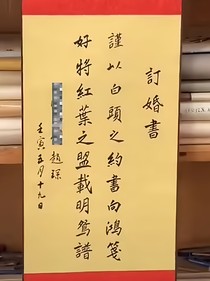 訂婚書
謹以白頭之約書向鴻箋
好將紅葉之盟載明鴛譜
趙琛
壬寅五月十九日